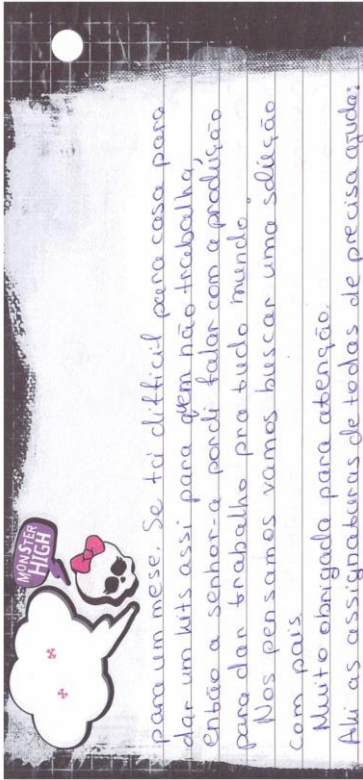 MONSTER
HIGH
para un mese. Se tai difficil para casa para
dar um kits assi para qem não trabalha,
então a senhor-a pordi falar com a produição
para dar trabalho pra tudo mundo.
Nos pensamos vamos buscar uma solução
com pais.
Muito obrigada para atenção.
Aki as assignaturas de todas de precisa ajuda: